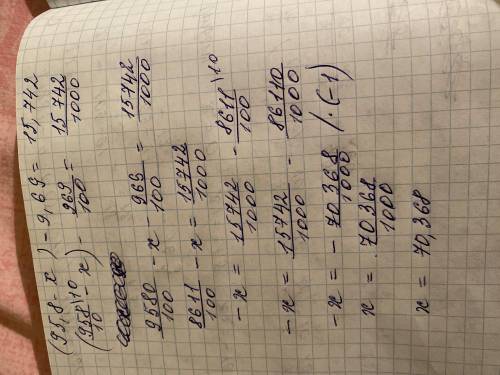 (95,8 - x) - 9,69 = 15,742
(958/10 \10 - x) 969/100 = 15742/1000
9580/100 - x - 969/100 = 15742/1000
8611/100 - x = 15742/1000
-x = 15742/1000 - 8611/100 \10
-x = 15742/1000 - 86110/1000
-x = - 70368/1000 / · (-1)
x = 70368/1000
x = 70,368